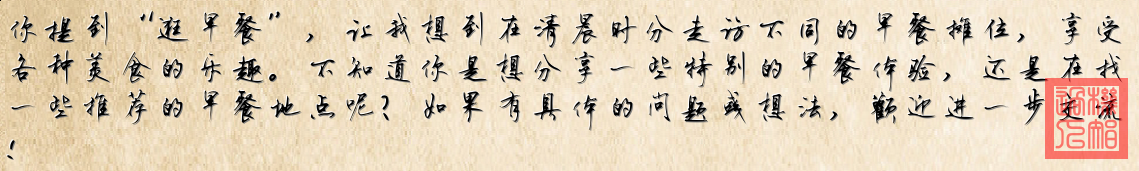 你提到“逛早餐”，让我想到在清晨时分走访不同的早餐摊位，享受
各种美食的乐趣。不知道你是想分享一些特别的早餐体验，还是在找
一些推荐的早餐地点呢？如果有具体的问题或想法，欢迎进一步交流
！